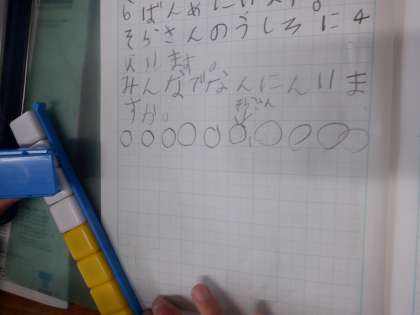 6ばんめにいます。
そらさんのうしろに4
人います。
みんなでなんにんいま
すか。
そらさん